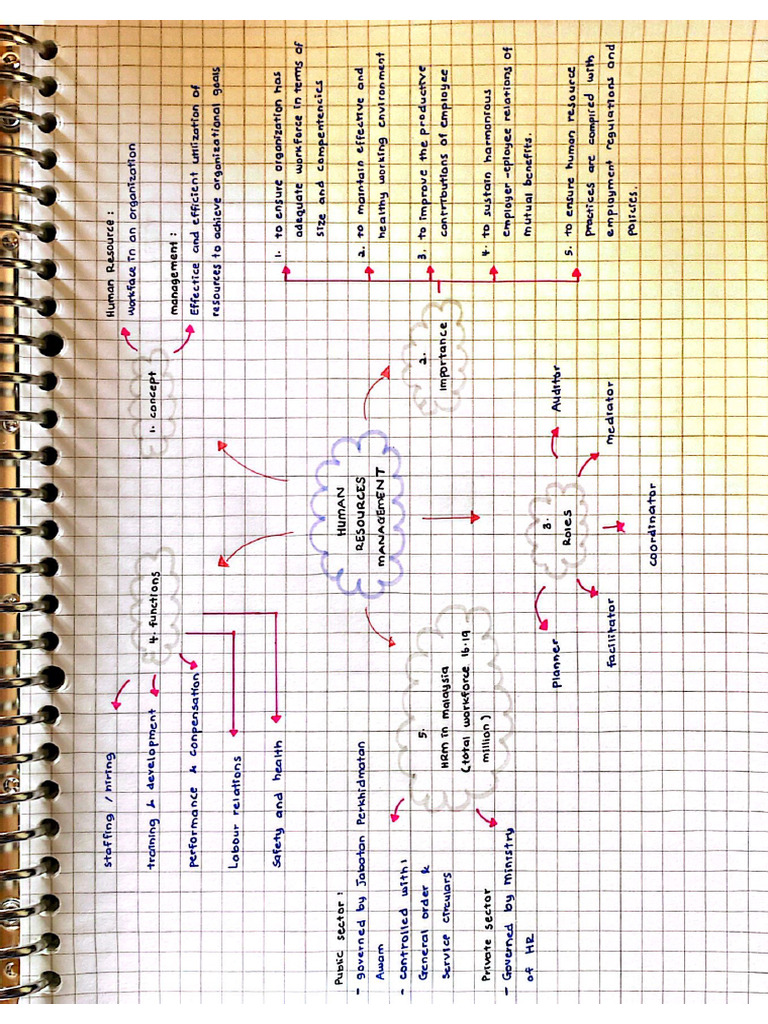 HUMAN
RESOURCES
MANAGEMENT
1. concept
Human Resource:
Workface in an organization
management:
Effectice and efficient utilization of
resources to achieve organizational goals
2.
importance
1. to ensure organization has
adequate workforce in terms of
size and compentencies
2. to maintain effective and
healthy working environment
3. to improve the productive
contributions of employee
4. to sustain harmonious
employer-eployee relations of
mutual benefits.
5. to ensure human resource
Practices are compired with
employment regulations and
policies.
3.
Roles
Auditor
mediator
coordinator
facilitator
Planner
4. functions
staffing / hiring
training & development
performance & conpensation
Labour relations
Safety and health
5.
HRM in malaysia
(total workforce 16.19
million)
Public sector:
- governed by Jabatan Perkhidmatan
Awam
- controlled with:
General order &
service circulars
Private sector
- Governed by ministry
of HR